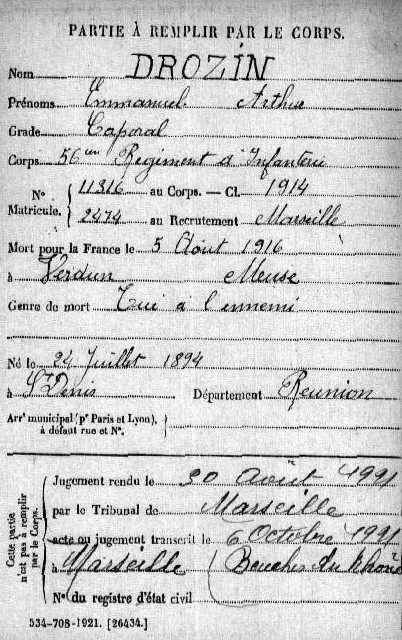 PARTIE À REMPLIR PAR LE CORPS.
Nom DROZIN
Prénoms Emmanuel Arthur
Grade Caporal
Corps 56me Régiment d'Infanterie
N° Matricule. 11316 au Corps. — Cl. 1914
2474 au Recrutement Marseille
Mort pour la France le 5 Août 1916
à Verdun Meuse
Genre de mort Tué à l'ennemi
Né le 24 Juillet 1894
à St Denis Département Réunion
Arrt municipal (pr Paris et Lyon), à défaut rue et N°.
Cette partie n'est pas à remplir par le Corps.
Jugement rendu le 30 Août 1921
par le Tribunal de Marseille
acte ou jugement transcrit le 6 Octobre 1921
à Marseille Bouches du Rhône
N° du registre d'état civil
534-708-1921. [26434.]